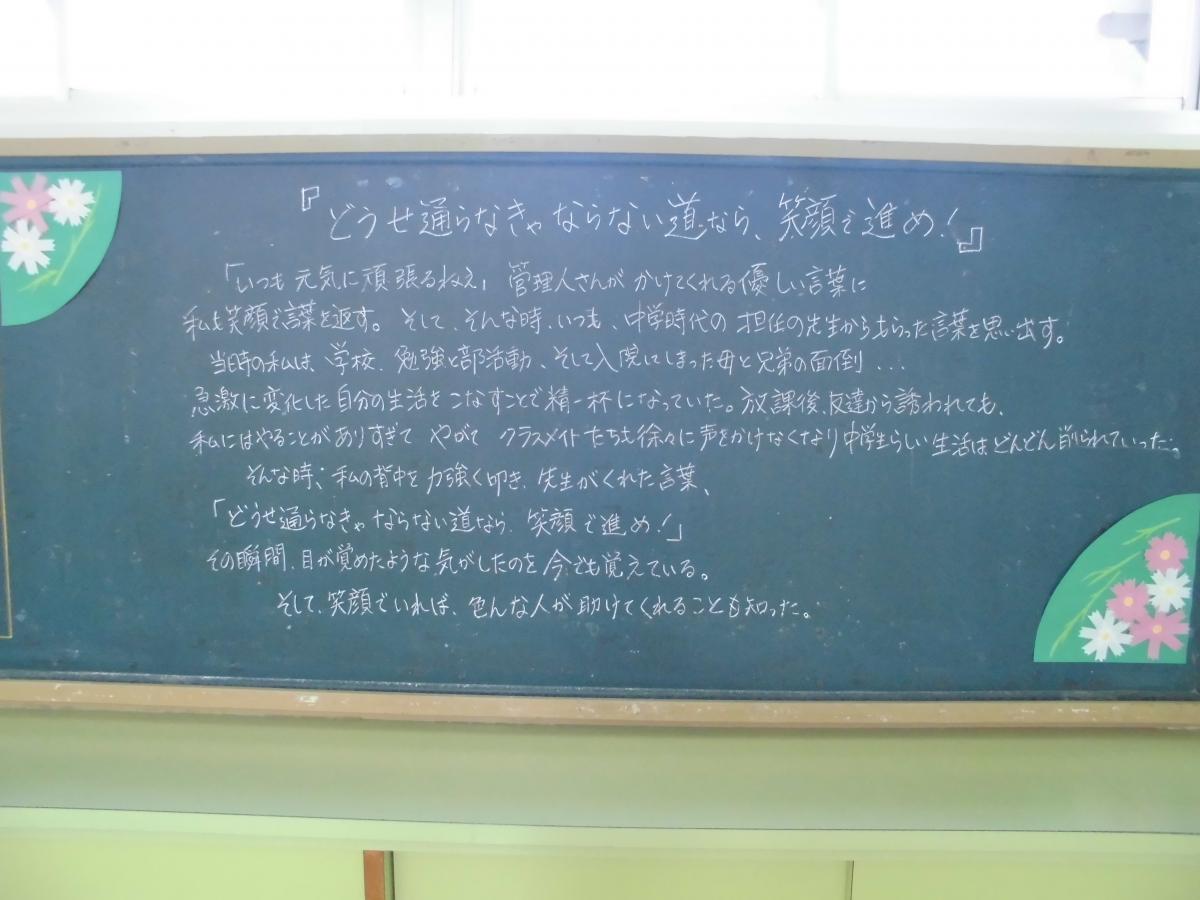 『どうせ通らなきゃならない道なら、笑顔で進め！』
「いつも元気に頑張るねえ」管理人さんがかけてくれる優しい言葉に
私も笑顔で言葉を返す。そして、そんな時、いつも、中学時代の担任の先生からもらった言葉を思い出す。
当時の私は、学校、勉強と部活動、そして入院してしまった母と兄弟の面倒...
急激に変化した自分の生活をこなすことで精一杯になっていた。放課後、友達から誘われても、
私にはやることがありすぎて やがて クラスメイトたちも徐々に声をかけなくなり中学生らしい生活はどんどん削られていった。
そんな時、私の背中を力強く叩き、先生がくれた言葉、
「どうせ通らなきゃならない道なら、笑顔で進め！」
その瞬間、目が覚めたような気がしたのを今でも覚えている。
そして、笑顔でいれば、色んな人が助けてくれることも知った。